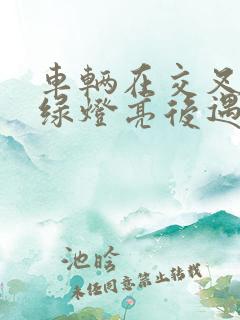 車輛在交叉
綠燈亮後遇
池晗
未经同意禁止转载